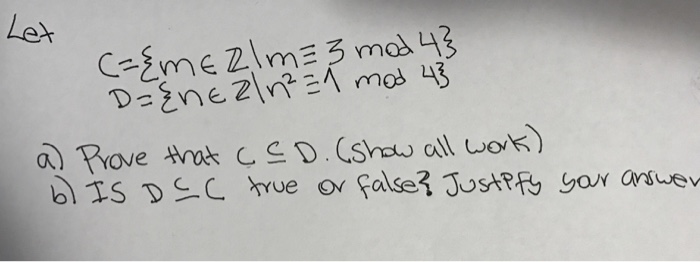 Let
C={m∈Z|m≡3 mod 4}
D={n∈Z|n²≡1 mod 4}
a) Prove that C⊆D. (Show all work)
b) IS D⊆C true or false? Justify your answer